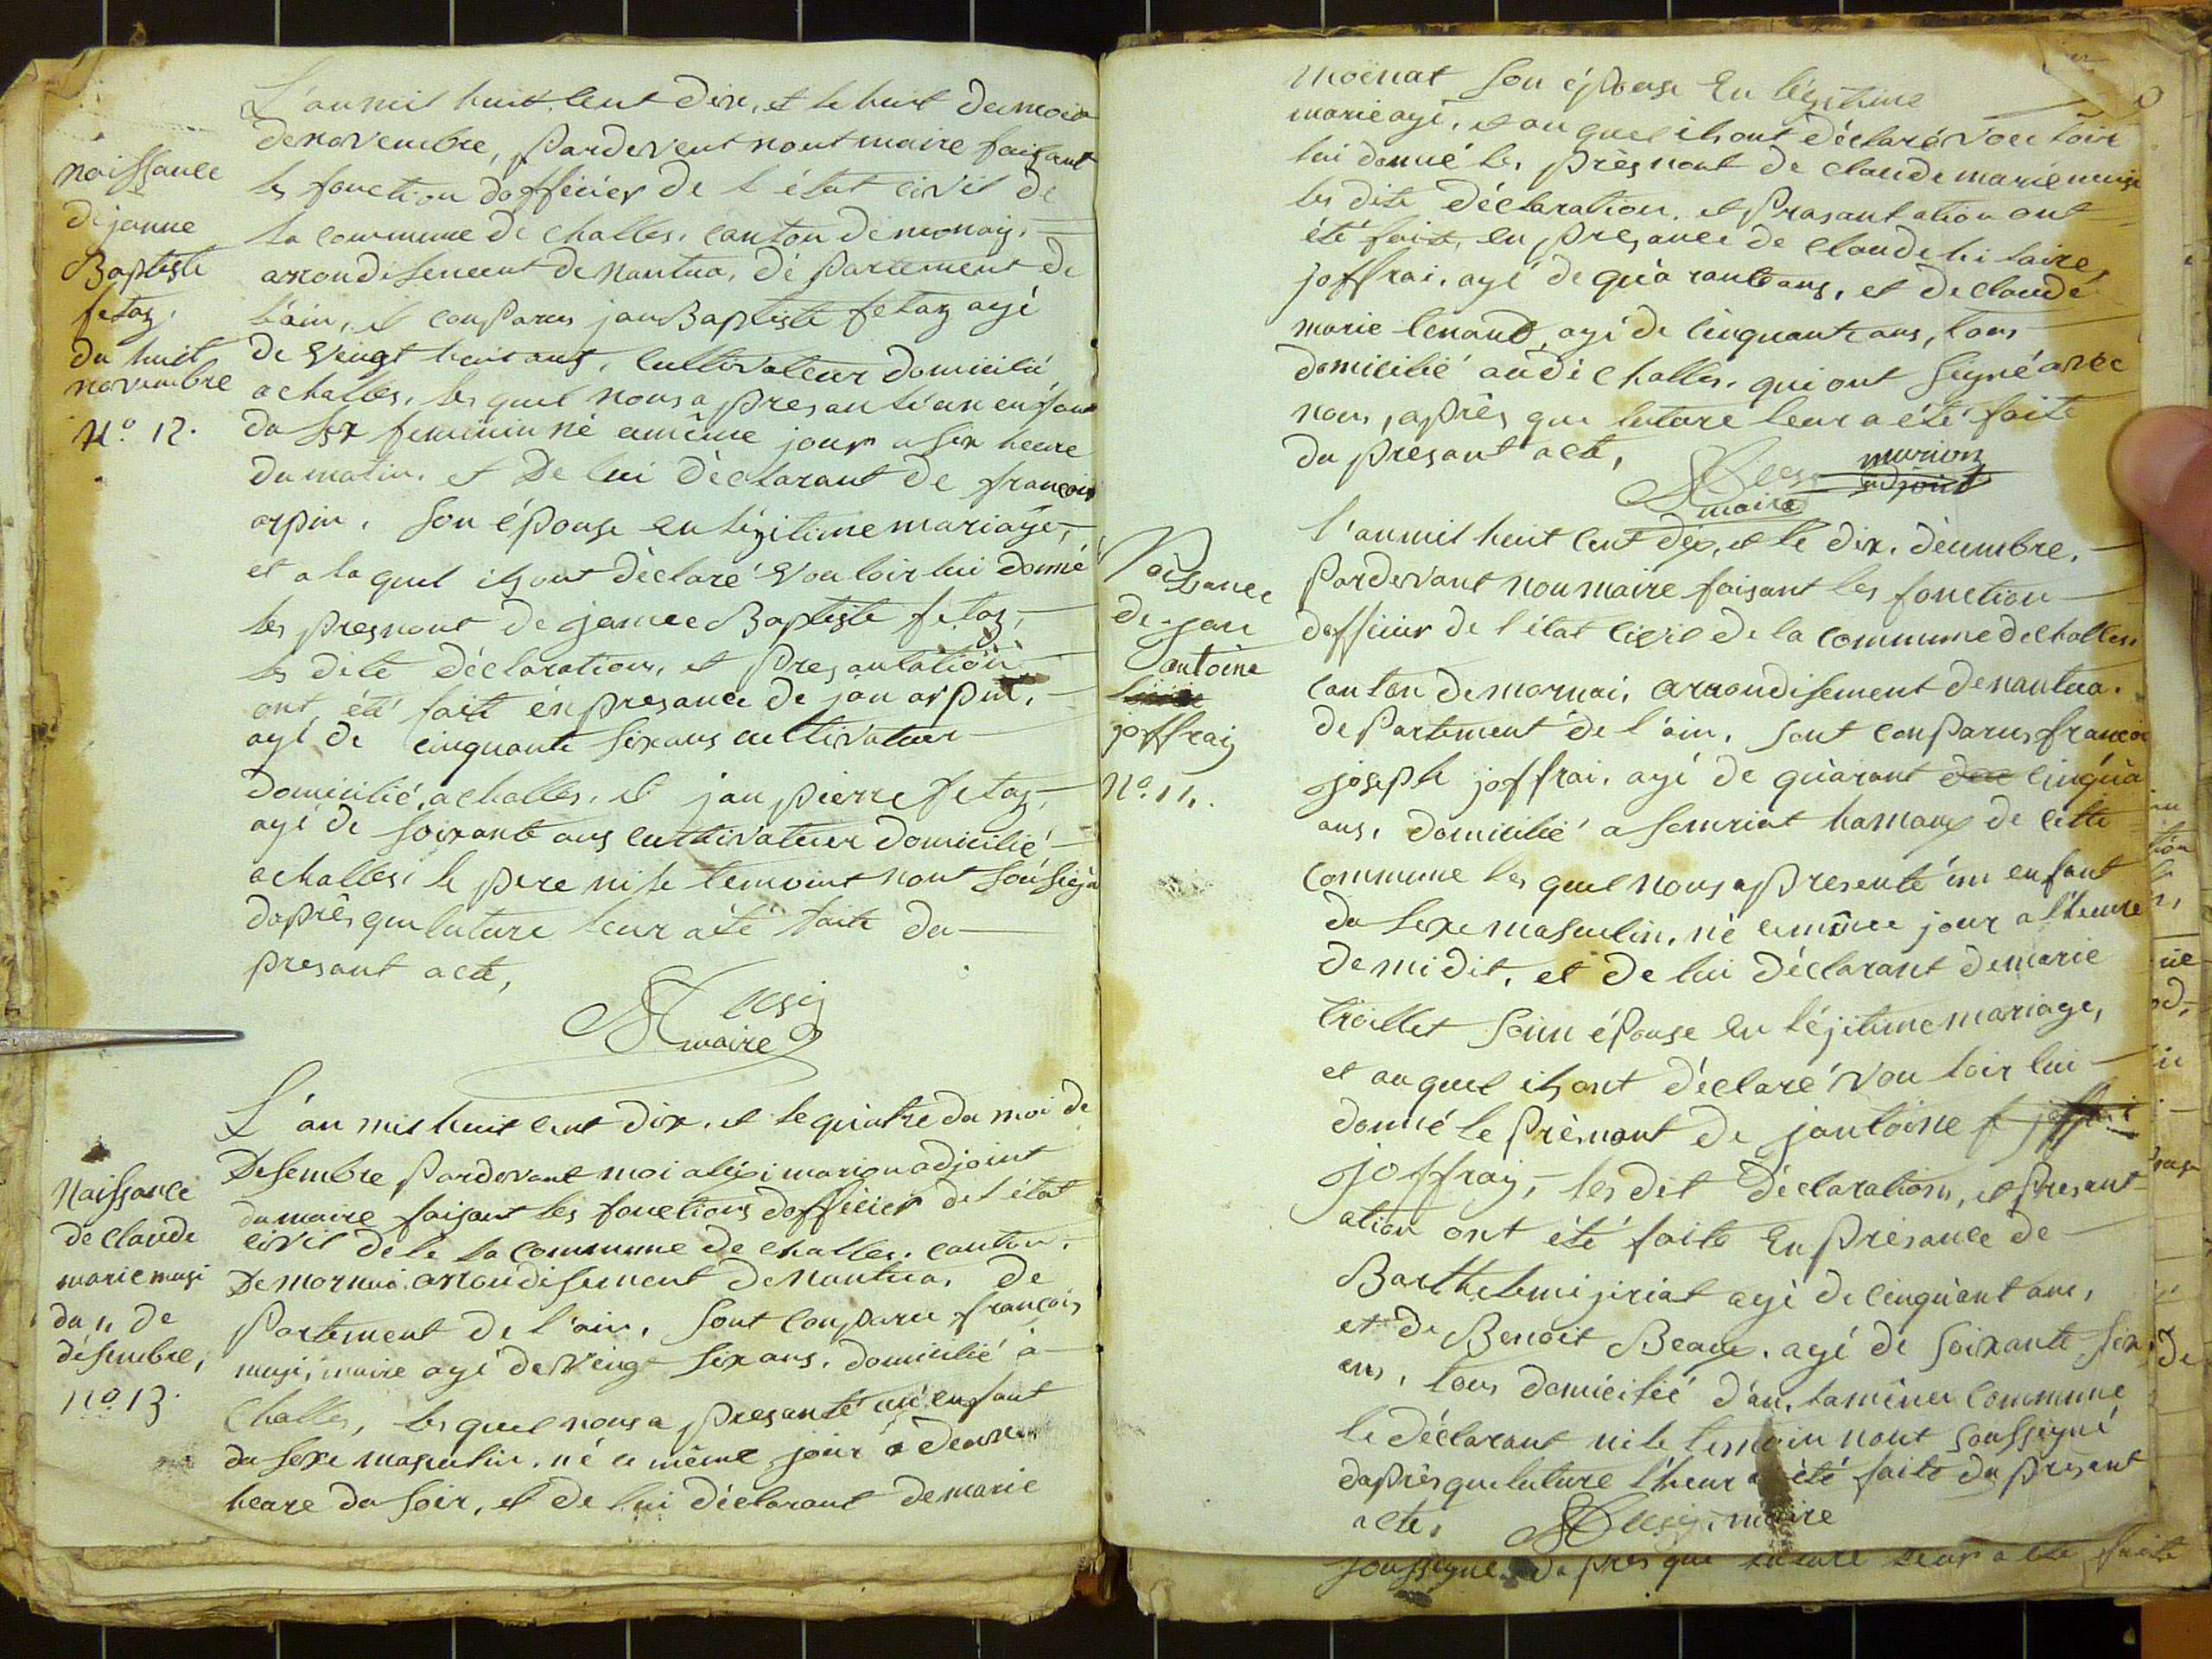 L'an mil huit cent dix, et le huit du mois
de novembre, pardevent nout maire faisant
les fonction dofficier de l'état civil de
la commune de challes, canton de mornay,
arrondisement de nantua, dé partement de
l'ain, et conparus jan Baptiste fetaz agé
de veingt huit ans, cultivateur domicilié
a challes, les quel nous a presanté un enfant
du sex feminin né cemême jour a six heure
du matin, et De lui Déclarant de françoise
arpin, son épouse en légitime mariage,
et a la quel ils ont déclaré vouloir lui donné
les presnont de janne Baptiste fetaz,
les dite déclaration, et presantation
ont été fait én presance de jan arpin,
agé de cinquante six ans cultivateur
domicilié, a challes, et jan pierre fetaz,
agé de soixante ans cultivateur domicilié
a challes, le pere ni le temoint nont sousigné
daprês que luture leur a été faite du
presant acte,
musy
maire
naissance
de janne
Baptiste
fetaz,
du huit
novembre
N.º 12.
L'an mil huit cent dix, et le quatre du moi de
Desembre pardevant moi marion adjoint
du maire faisant les fonctions dofficier de l'état
civil de la la commune de challes, canton
De mornai arrondisement de nantua, de
partement de l'ain, sont conparu françois
musi, maire agé de veingt six ans, domicilié a
challes, les quel nous a presanté un enfant
du sexe masculin, né ce même jour a deux
heure du soir, et de lui déclarant de marie
Naissance
de claude
marie musi
du 4 de
désembre,
nº 13.
moënat son épouse En légitime
marieagé, et au quel ils ont déclaré vouloir
lui donné les prèsnont de claude marie musi
les dite déclaration, et prasantation ont
été faite, en presance de claude hilaire
joffrai, agé de quarante ans, et de claude
marie lenaud, agé de cinquante ans, tous
domicilié audi challes, qui ont signé avec
nous, après que luture leur a été faite
du presant acte,
musy marion
maire adjoint
l'an mil huit cent dix, et le dix, décembre,
pardevant nou maire faisant les fonction
dofficier de l'état civil de la commune de challes,
canton de mornai, arrondisement de nantua,
departement de l'ain, sont conparus françois
joseph joffrai, agé de quarant cinq
ans, domicilié a samriat hamaux de cette
commune les quel nous a presenté un enfant
du sexe masculin, né ce même jour a l'heure
de midit, et de lui déclarant de marie
triollet sonn épouse en léjitime mariage,
et au quel ils ont déclaré vouloir lui
donné le prèmont de jantoine f joffrai
joffray, les dit déclarations, et presant
ation ont été faite En presance de
Barthelemi jiriat agé de cinquant ans,
et de Benoit Beaux, agé de soixante six
ans, tous domicilié dan, la même commune
le déclarant ni le temoin nont soussigné
daprès que luture l'heur a été faite du present
acte, musy, maire
Naissance
de jan
antoine
joffray
Nº. 14.
soussigné daprès que luture leur a été faite